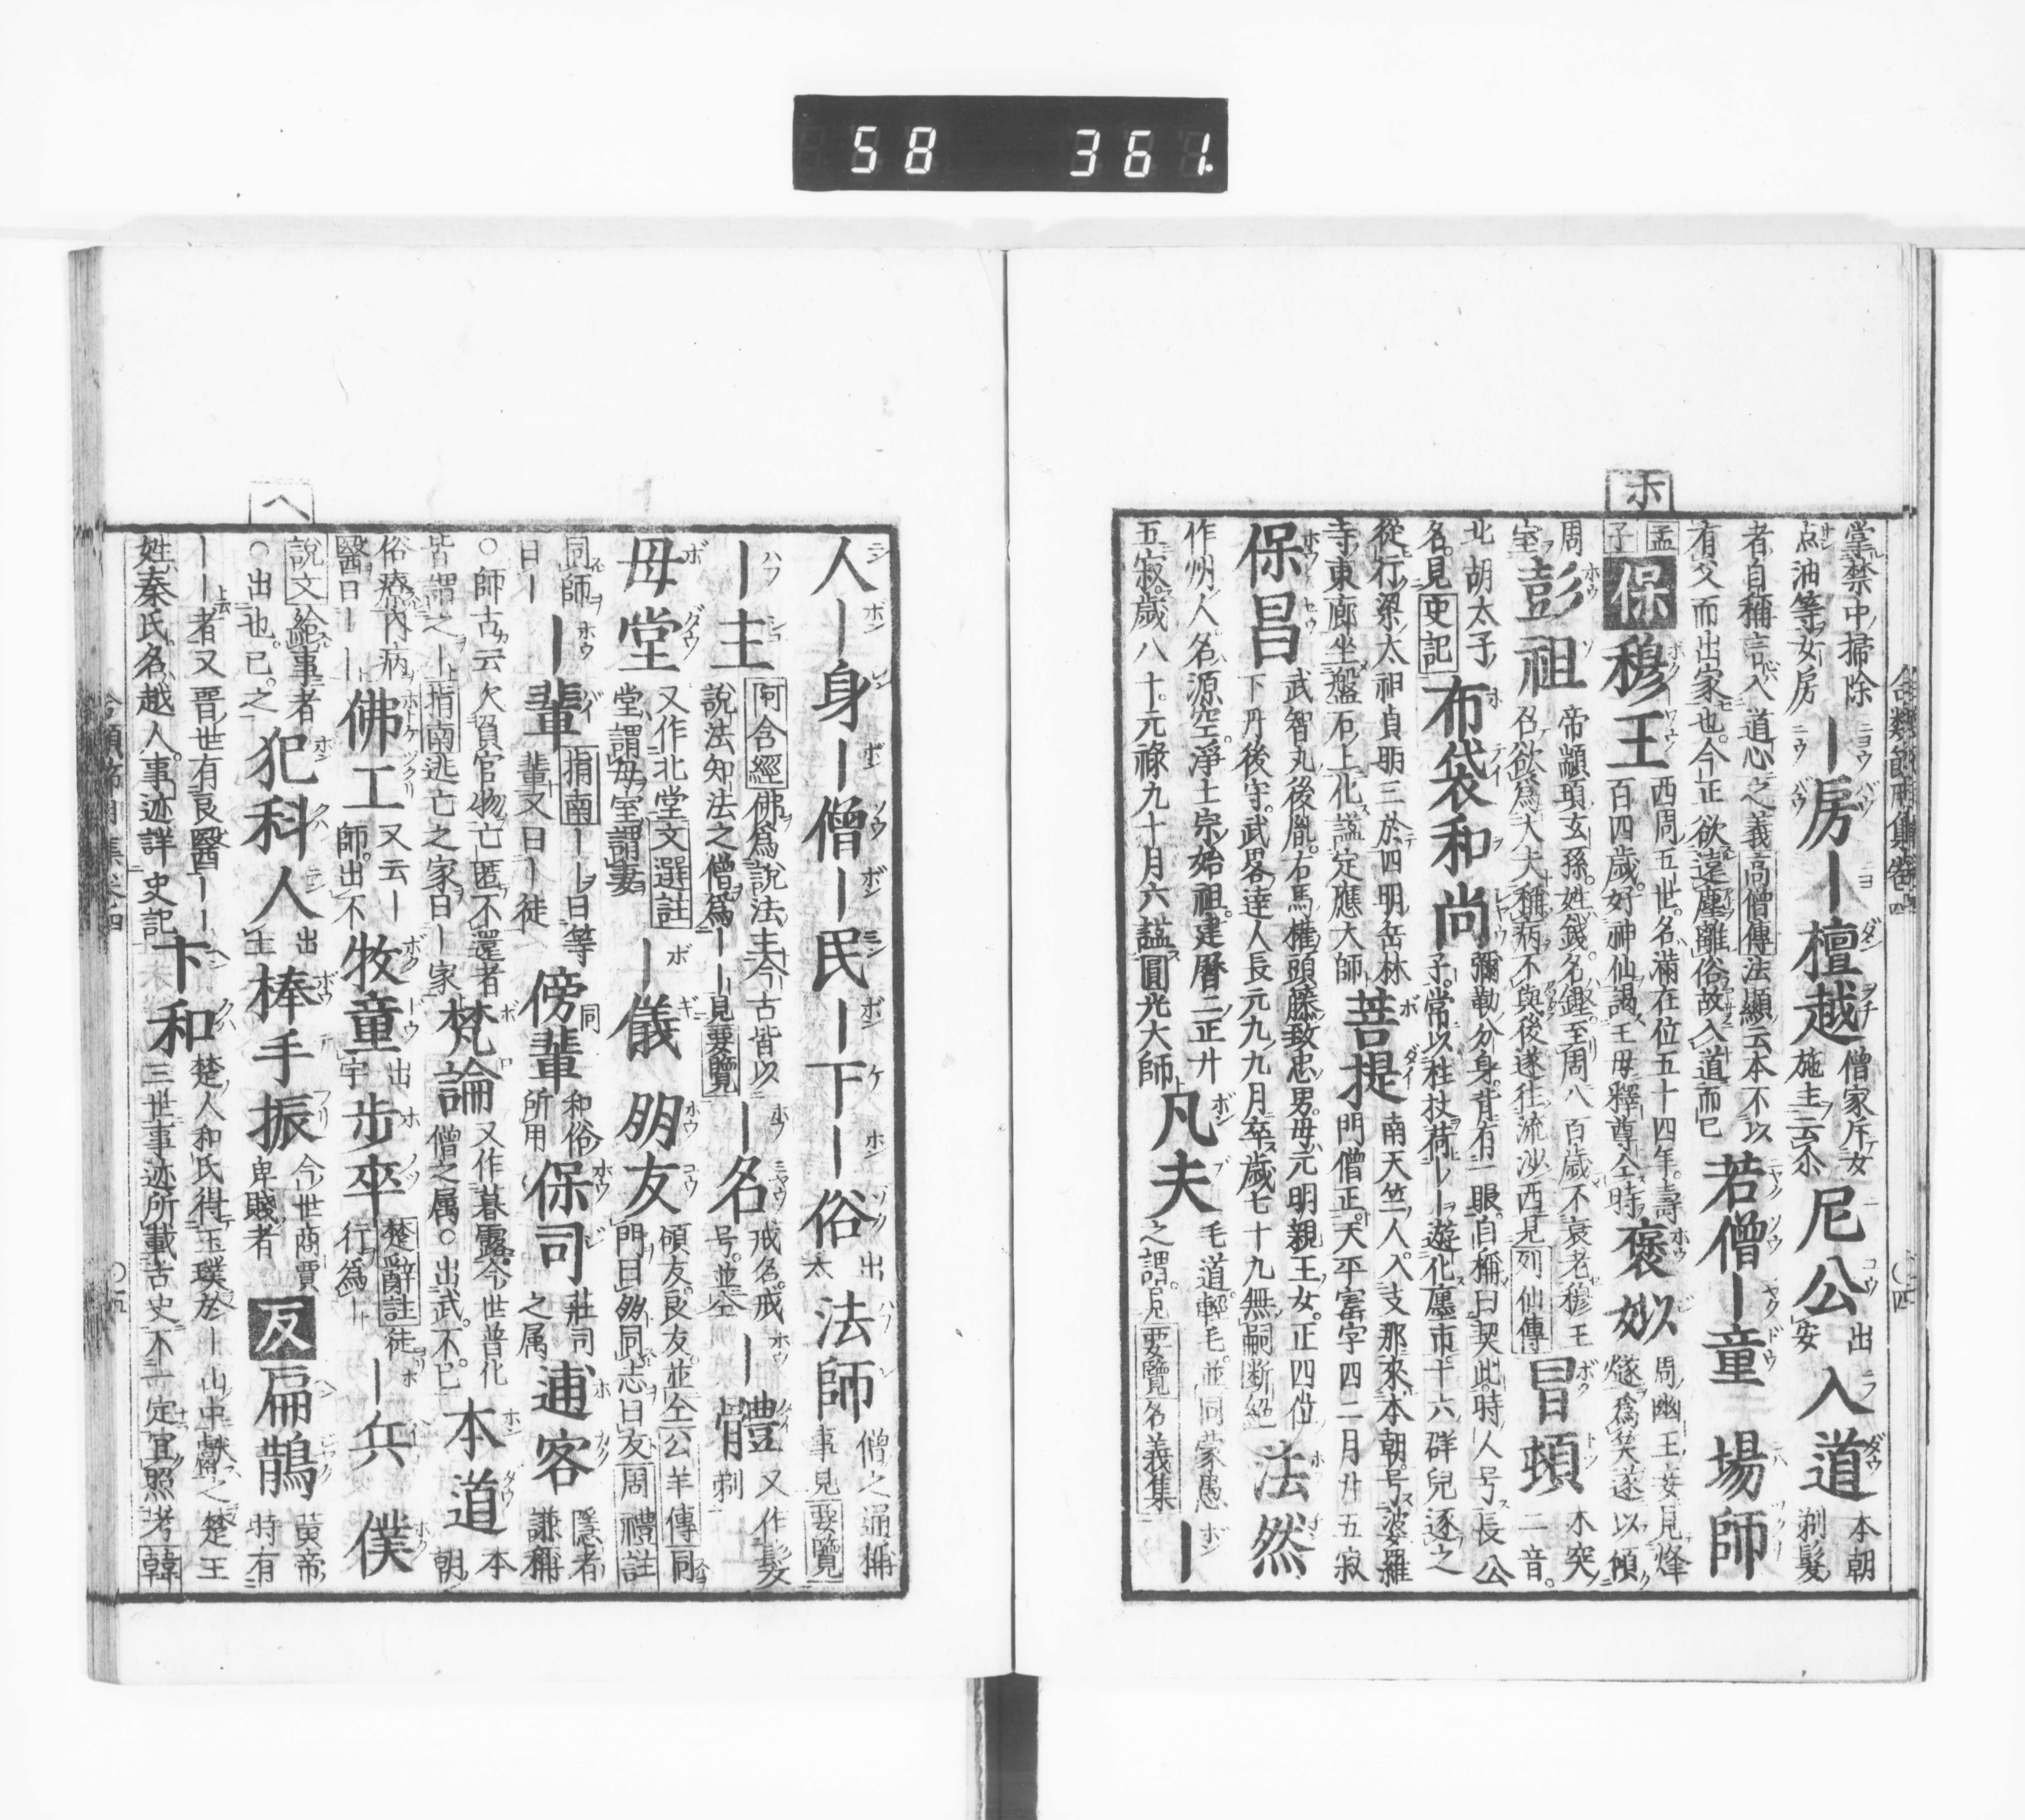 58 361
合類節用集卷四
掌禁中掃除
点油等女房
ー房
ー
檀越
僧家斥女
施主云尒
尼公
出
安
入道
本朝
剃髮
者自稱言入道心之義高僧傳法顯云本不以
有父而出家也今正欲遠塵離俗故入道而已
若僧
ー童
場師
孟
子
ホ
保
穆王
西周五世名滿在位五十四年壽
百四歲好神仙謁王母釋尊仝時
褒姒
周幽王妾見烽
燧爲笑遂以傾
周
室
彭祖
帝顓頊玄孫姓錢名鏗至周八百歲不衰老穆王
召欲爲大夫稱病不與後遂往流沙西見列仙傳
冒頓
木突
二音
北胡太子
名見史記
布袋和尚
彌勒分身背有一眼自稱曰契此時人号長公
子常以柱杖荷ーー遊化鄽市十六群兒逐之
從行梁太祖貞明三於四明岳林
寺東廊坐盤石上化謚定應大師
菩提
南天竺人入支那來本朝号波羅
門僧正天平寳字四二月廿五寂
保昌
武智丸後胤右馬權頭藤致忠男母元明親王女正四位
下丹後守武畧達人長元九九月卒歲七十九無嗣断絕
法然
作州人名源空淨土宗始祖建曆二正廿
五寂歲八十元祿九十月六謚圓光大師
凡夫
毛道輕毛並同蒙愚
之謂見要覽名義集
ー
人
ー身
ー僧
ー民
ー下
ー俗
出
太
法師
僧之通稱
事見要覽
ー主
阿含經佛爲說法主今古皆以
說法知法之僧爲ーー見要覽
ー名
戒名戒
号並仝
ー體
又作髮
剃
母堂
又作北堂文選註
堂謂母室謂妻
ー儀
朋友
傾友良友並仝公羊傳同
門曰朋同志曰友周禮註
同師
曰ー
ー輩
指南ーー曰等
輩又曰ー徒
傍輩
同
和俗
所用
保司
莊司
之属
逋客
隱者
謙稱
○師古云欠負官物亡匿不還者
皆謂之ー指南逃亡之家曰ー家
梵論
又作暮露今世普化
僧之属○出武不已
本道
本
朝
俗療內病
醫曰ー
佛工
又云ー
師出不
牧童
出
宇
步卒
楚辭註徒
行爲ー
ー兵
僕
說文給事者
○出也已之
犯科人
出
主
棒手振
今世商賈
卑賤者
ヘ
反
扁鵲
黃帝
時有
ーー者又晋世有良醫ーー
姓秦氏名越人事迹詳史記
卞和
楚人和氏得玉璞於ー山中獻之楚王
三世事迹所載古史不一定宜照考韓
合類節用集卷四